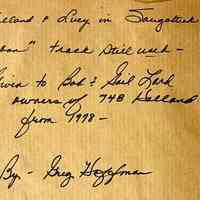 olland & Lucy in Saugatuck
oon" track still used -
Given to Bob & Gail Lark
owners of 748 Holland
from 1998 -
By - Greg Hoffman